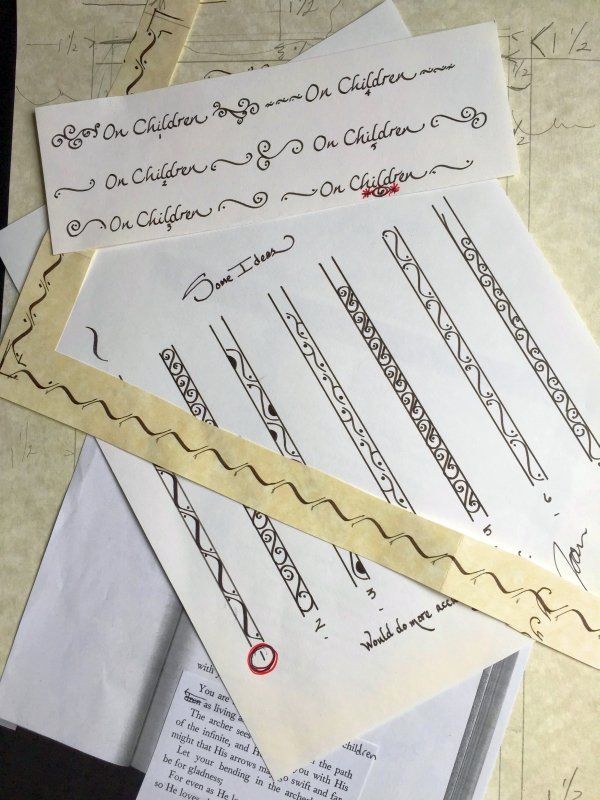 1 1/2
1 1/2
On Children
1
On Children
4
On Children
2
On Children
5
On Children
3
On Children
6
Some Ideas
6
5
3
2
1
Would do more
with
You are
as living
children
The archer sees the path
of the infinite, and you with His
might that His arrows swift and far
Let your bending in the
be for gladness;
For even as He
so He loves